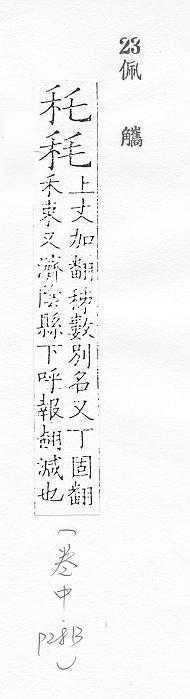 23 佩觿
秅秏
上丈加翻秭數別名又丁固翻
禾束又濟陰縣下呼報翻減也
(卷中 P28B)